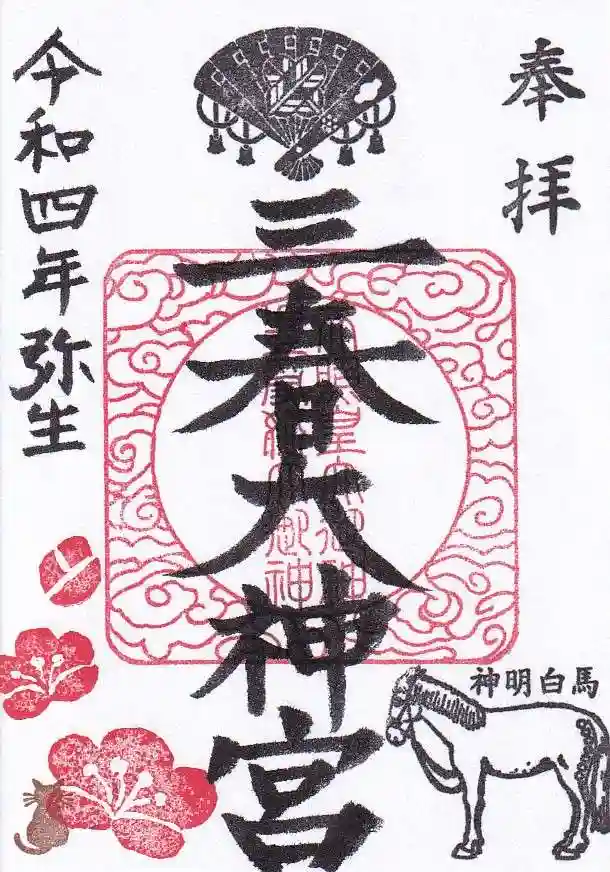 奉拝
三春大神宮
令和四年弥生
神明白馬